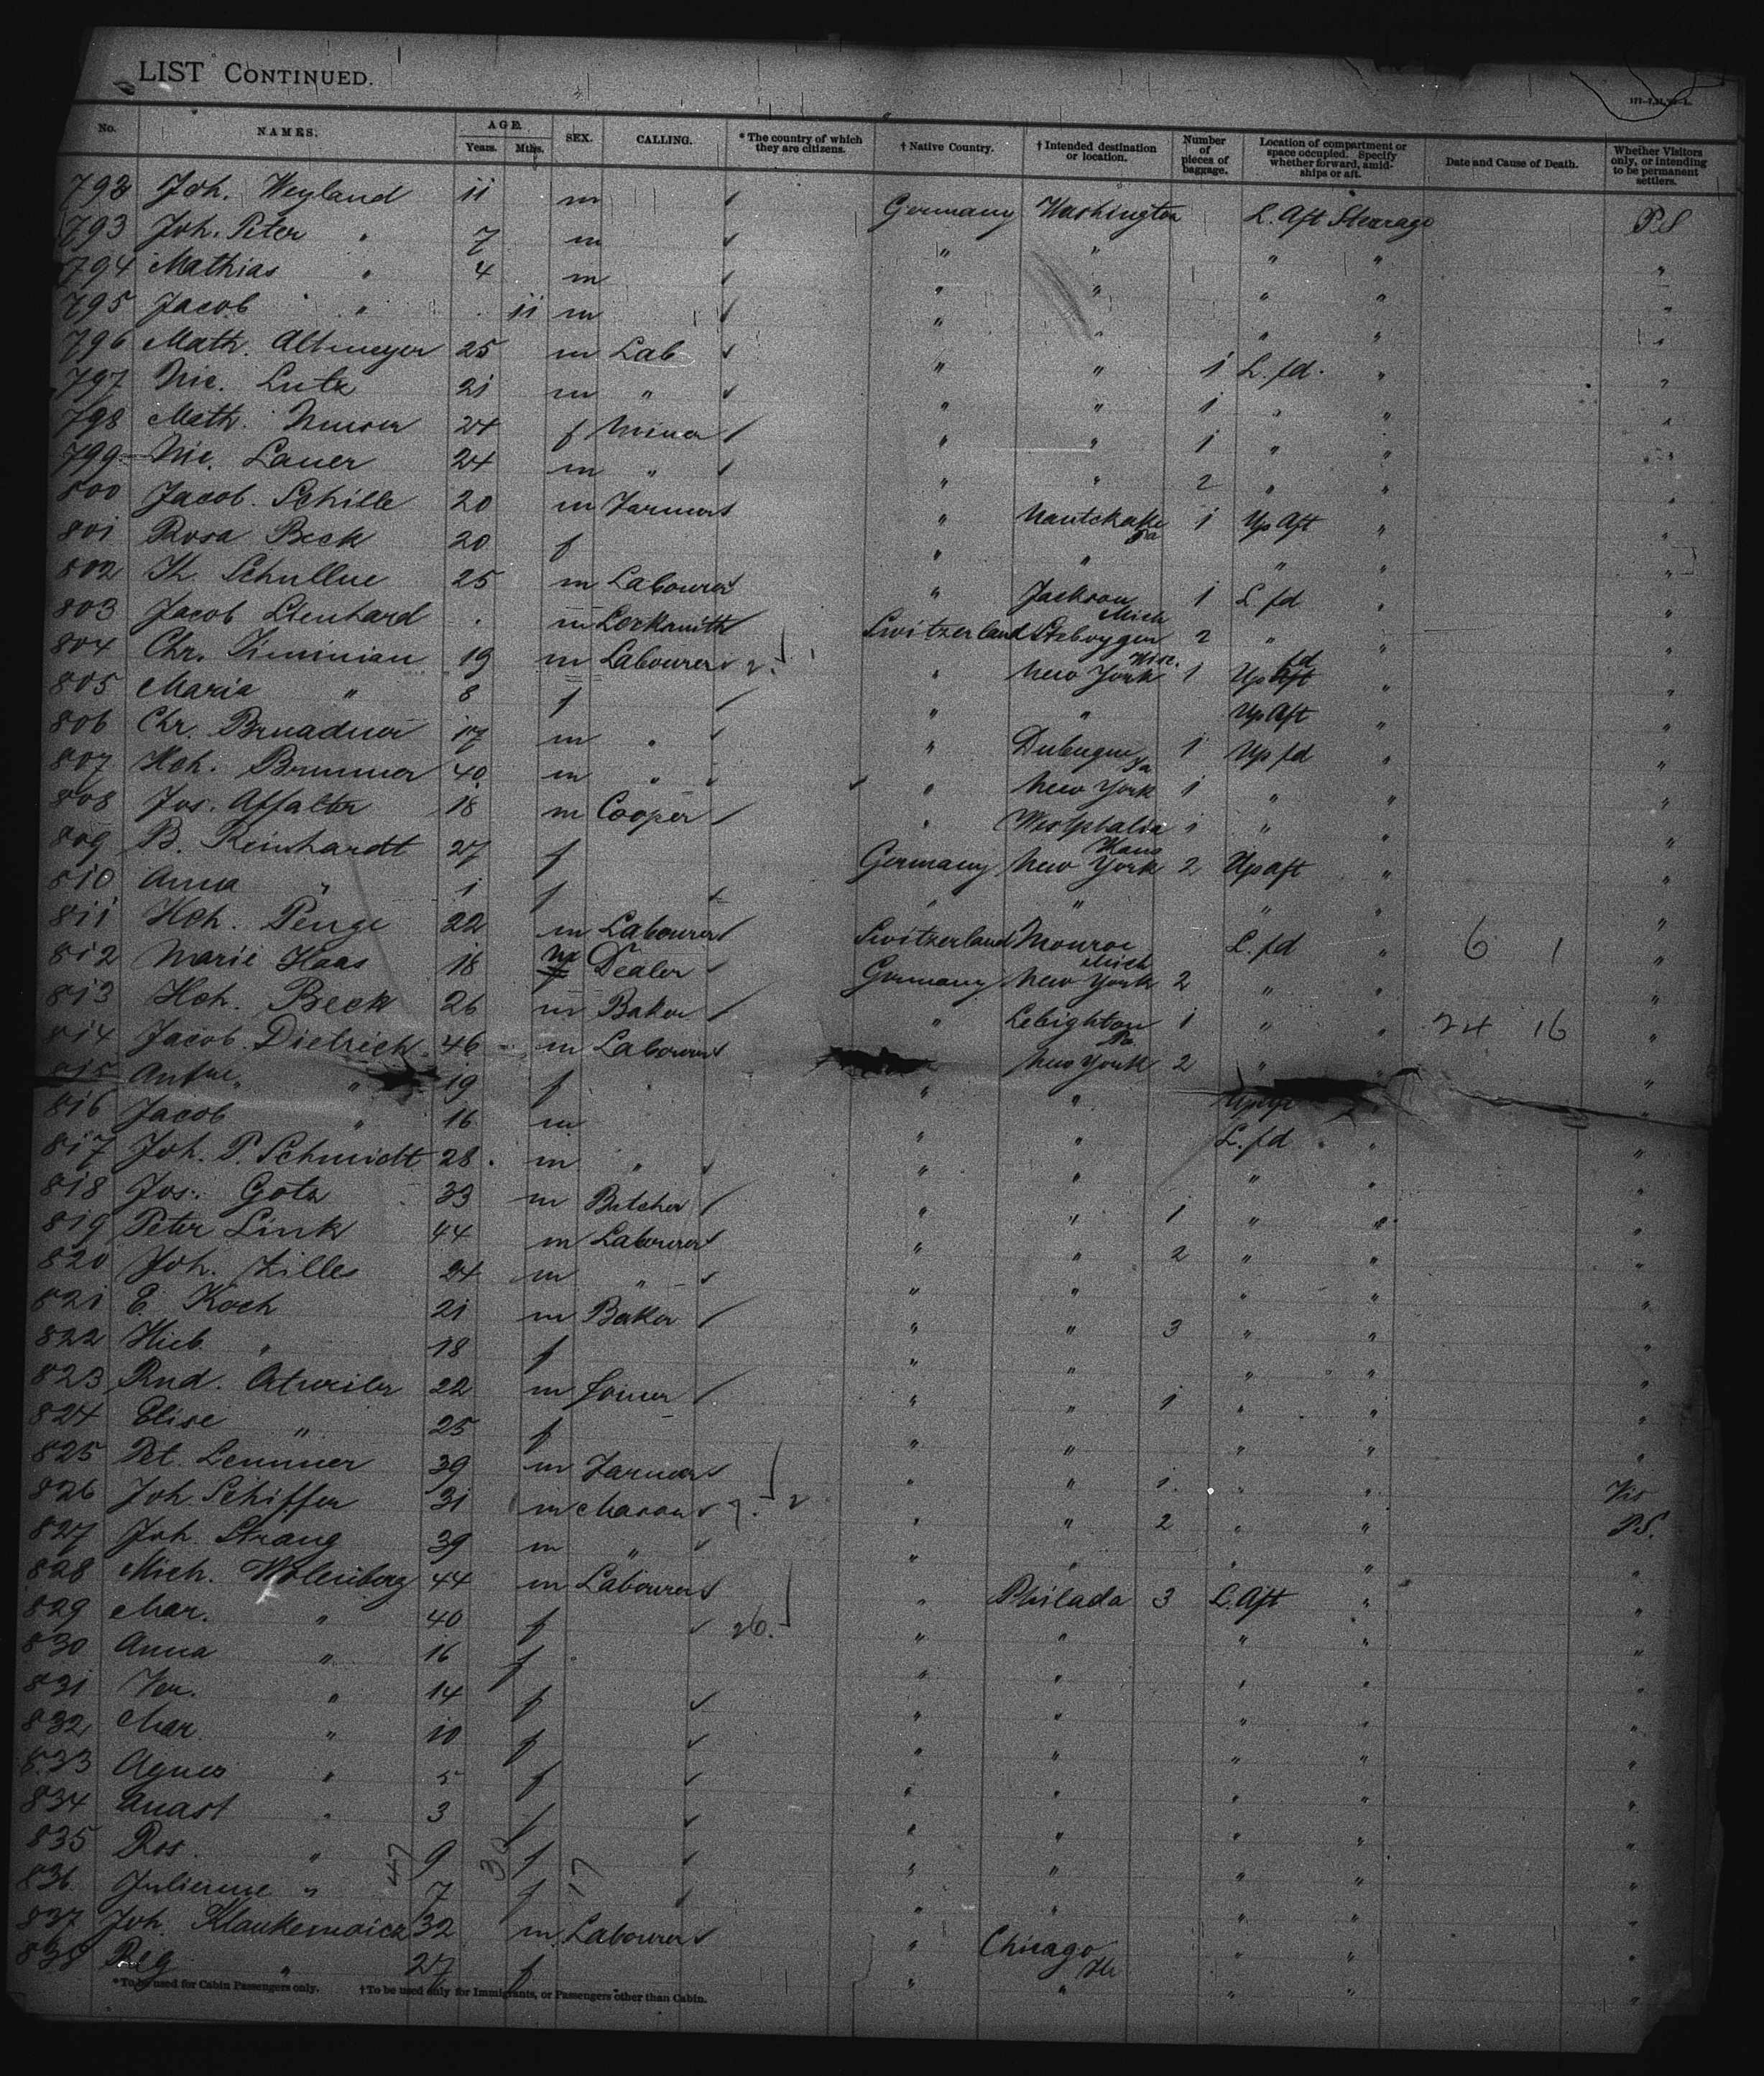 LIST CONTINUED.
No. NAMES. AGE. Years. Mths. SEX. CALLING. * The country of which they are citizens. † Native Country. † Intended destination or location. Number of pieces of baggage. Location of compartment or space occupied. Specify whether forward, amidships or aft. Date and Cause of Death. Whether Visitors only, or intending to be permanent settlers.
792 Joh. Weyland 11 m Germany Washington L. Aft Stearage P.S
793 Joh. Peter " 7 m " " " " "
794 Mathias " 4 m " " " " "
795 Jacob " 11 m " " " " "
796 Math. Altmeyer 25 m Lab " " 1 L. fd. " "
797 Nic. Lutz 21 m " " " 1 " " "
798 Math. 24 f Miner " " 1 " " "
799 Nic. Lauer 24 m " " " 2 " " "
800 Jacob Schille 20 m Farmer " Pa 1 Up Aft " "
801 Rosa Beck 20 f " " " " "
802 Th. Schullue 25 m Labourer " Jackson Mich 1 L fd " "
803 Jacob Lienhard m Locksmith Switzerland Wisc. 2 " "
804 Chr. 19 m Labourer 2. " New York 1 Up fd " "
805 Maria " 8 f " " Up Aft " "
806 Chr. 17 m " " Dubuque Ia 1 Up fd " "
807 Hch. Brunner 40 m " " New York 1 " " "
808 Jos. Affalter 18 m Cooper " Westphalia 1 " " "
809 B. Reinhardt 27 f Germany New York 2 Up aft " "
810 Anna " 1 f " " " " "
811 Hch. Penge 22 m Labourer Switzerland Monroe Mich L. fd " 6 1 "
812 Marie Haas 18 Dealer Germany New York 2 " " "
813 Hch. Beck 26 m Baker " Lehighton Pa 1 " " 24 16 "
814 Jacob Dietrich 46 m Labourer New York 2 " " "
815 " 19 f " " "
816 Jacob " 16 m " " L. fd " "
817 Joh. P. Schmidt 28 m " " " " " "
818 Jos. Gotz 33 m Butcher " " 1 " " "
819 Peter Link 44 m Labourer " " 2 " " "
820 Joh. Zilles 24 m " " " " " "
821 E. Koch 21 m Baker " " 3 " " "
822 " 18 f " " " " "
823 Rud. 22 m Joiner " " 1 " " "
824 Elise " 25 f " " " " "
825 Pet. Lemmer 39 m Farmer " " 1 " " Vis
826 Joh Schiffer 31 m Mason " " 2 " " P.S.
827 Joh. Strang 39 m " " " " " "
828 Mich. 44 m Labourer " Philada 3 L. Aft " "
829 Mar. " 40 f 26. " " " " "
830 Anna " 16 f " " " " "
831 Ver. " 14 f " " " " "
832 Mar " 10 f " " " " "
833 Agnes " 5 f " " " " "
834 Anast " 3 f " " " " "
835 Ros. " 9 f " " " " "
836 " 7 f " " " " "
837 Joh. 32 m Labourer " Chicago Ill " " "
838 Reg " 27 f " " " " "
47 30 17
*To be used for Cabin Passengers only. †To be used only for Immigrants, or Passengers other than Cabin.